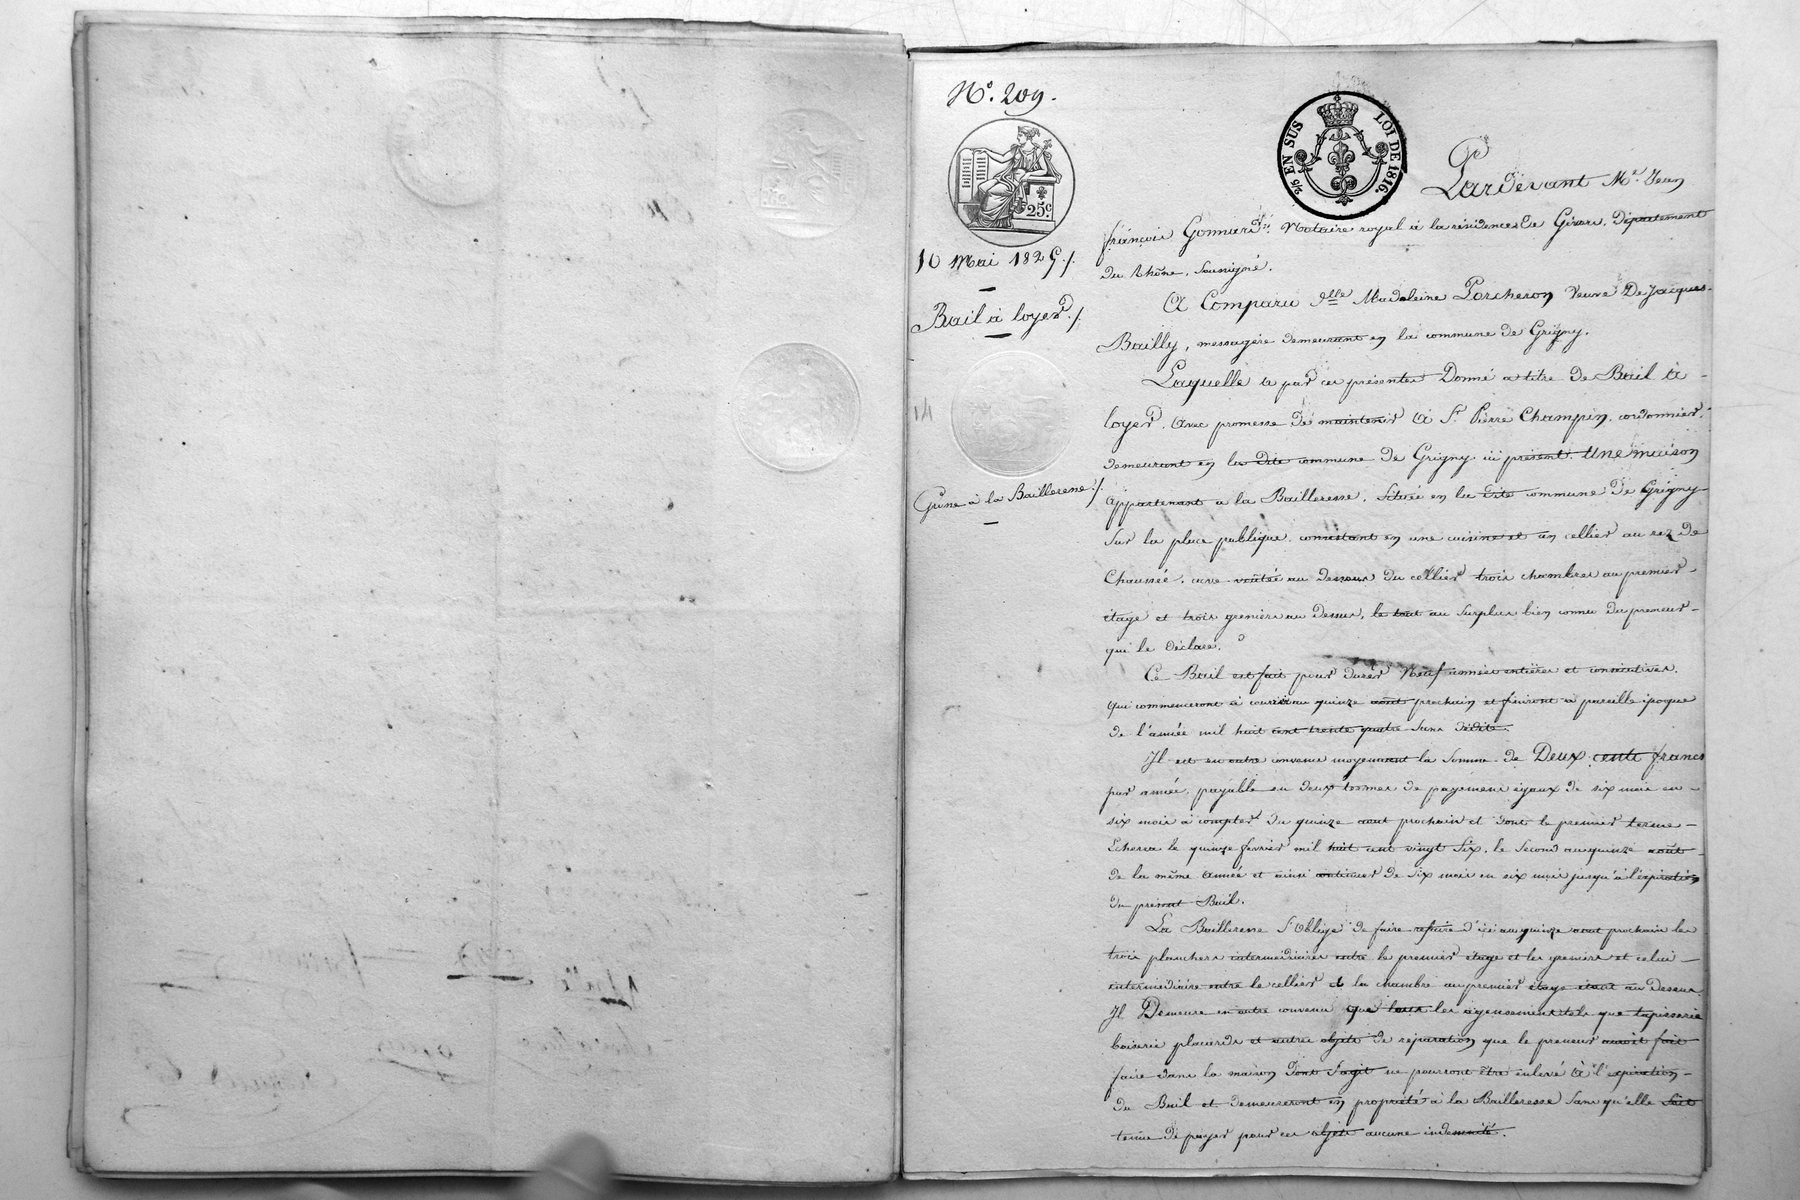 N.° 209.
2/6 EN SUS LOI DE 1816.
25c.
10 Mai 1825./.
Bail à loyer./.
14
Grosse à la Bailleresse./.
Pardevant Me. Jean
françois Gonnard, Notaire royal à la résidence de Givors, Département
du Rhône, soussigné.
A Comparu Madeleine Porcheron Veuve De Jacques
Bailly, messagère demeurant en la commune de Grigny.
Laquelle a par ces présentes Donné à titre de Bail à
loyer, avec promesse de maintenir A Sr. Pierre Champin, cordonnier,
demeurant en la dite commune de Grigny ici présent. Une maison
appartenant a la Bailleresse, située en la dite commune de Grigny
sur la place publique, consistant en une cuisine et un cellier au rez de
Chaussée, cave voûtée au dessous du cellier trois chambres au premier
étage et trois greniers au dessus, le tout au surplus bien connu du preneur
qui le déclare.
Ce Bail est fait pour durer Neuf années entières et consécutives.
qui commenceront à courir au quinze aout prochain et finiront a pareille époque
de l'année mil huit cent trente quatre sans dédite.
Il est en outre convenu moyennant la Somme de Deux cents francs
par année, payable en deux termes de payement égaux de six mois en
six mois à compter du quinze aout prochain et dont le premier terme
Echerra le quinze fevrier mil huit cent vingt Six, le second au quinze août
de la même année et ainsi continuer de six mois en six mois jusqu'à l'expiration
du présent Bail.
La Bailleresse s'oblige de faire refaire d'ici au quinze aout prochain les
trois planchers intermédiaires entre le premier étage et les greniers et celui
intermédiaire entre le cellier et la chambre au premier étage étant au Dessus.
Il Demeure en outre convenu que tous les agensements tels que tapisserie
boiserie placards et autres objets de réparation que le preneur auroit fait
faire dans la maison dont s'agit ne pourront être enlevé à l'expiration
du Bail et demeureront en propriété à la Bailleresse sans qu'elle soit
tenue de payer pour ces objets aucune indemnité.